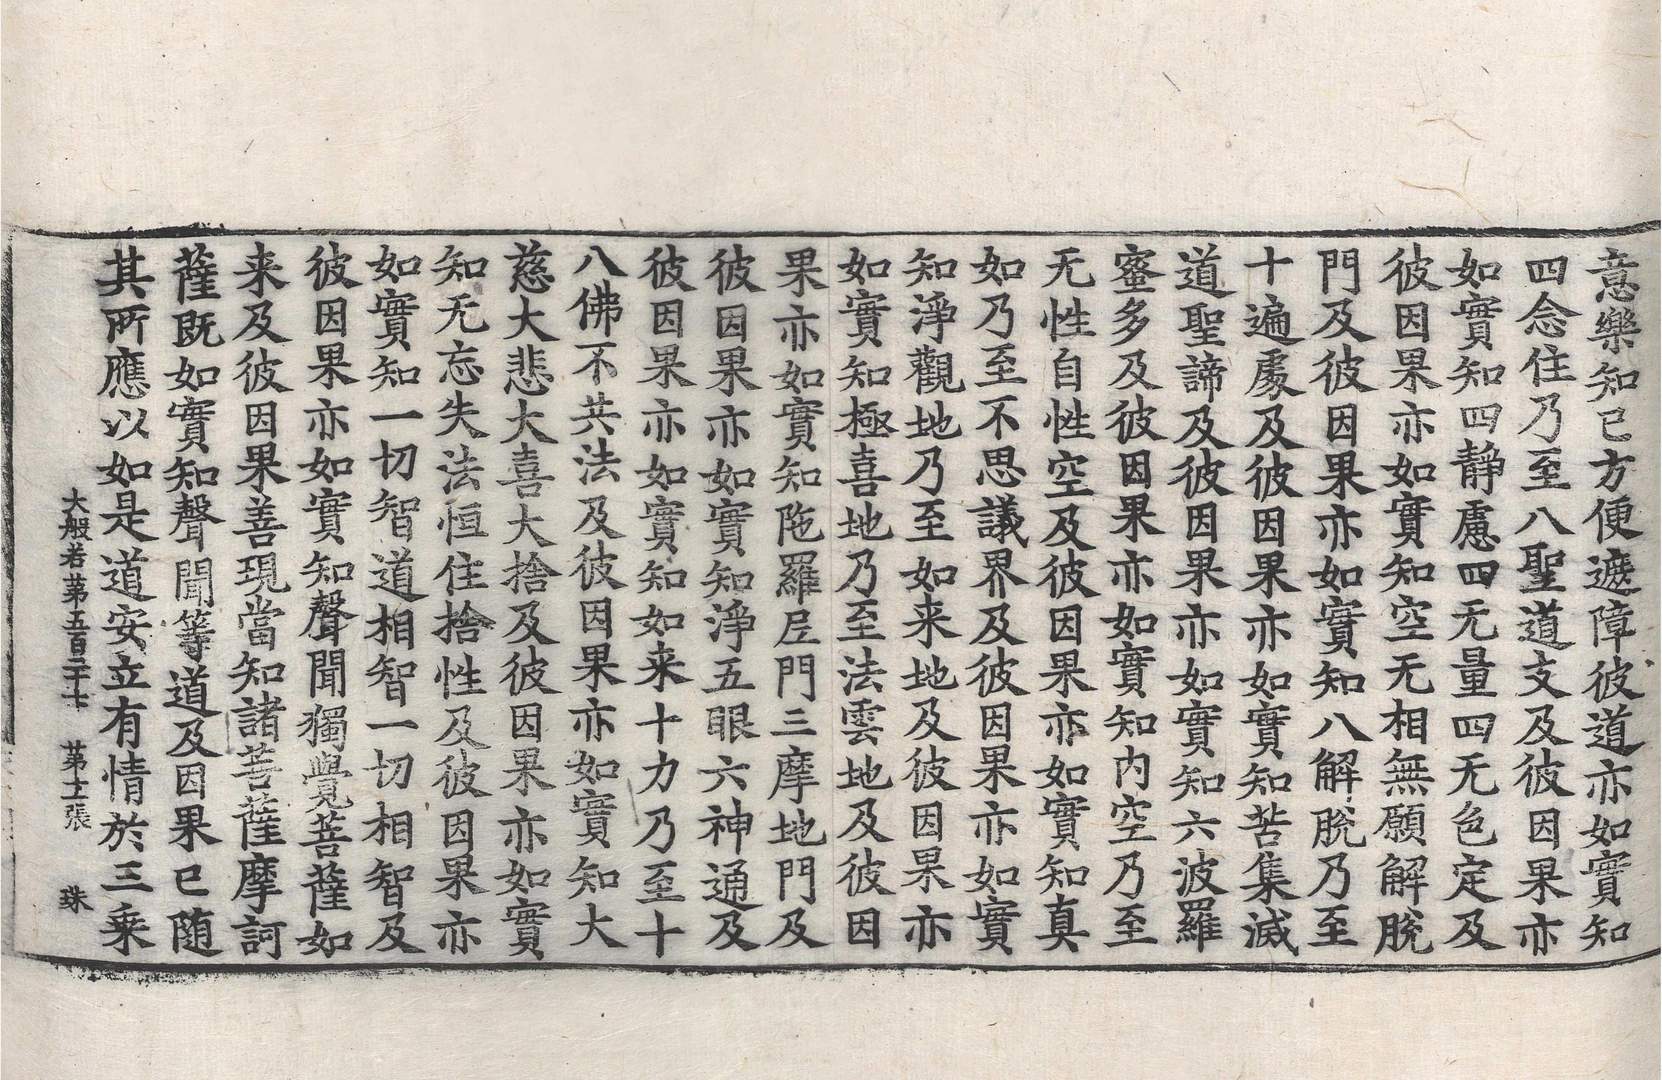 意樂知已方便遮障彼道亦如實知
四念住乃至八聖道支及彼因果亦
如實知四靜慮四无量四无色定及
彼因果亦如實知空无相無願解脫
門及彼因果亦如實知八解脫乃至
十遍處及彼因果亦如實知苦集滅
道聖諦及彼因果亦如實知六波羅
蜜多及彼因果亦如實知內空乃至
无性自性空及彼因果亦如實知真
如乃至不思議界及彼因果亦如實
知淨觀地乃至如来地及彼因果亦
如實知極喜地乃至法雲地及彼因
果亦如實知陁羅尼門三摩地門及
彼因果亦如實知淨五眼六神通及
彼因果亦如實知如来十力乃至十
八佛不共法及彼因果亦如實知大
慈大悲大喜大捨及彼因果亦如實
知无忘失法恒住捨性及彼因果亦
如實知一切智道相智一切相智及
彼因果亦如實知聲聞獨覺菩薩如
来及彼因果善現當知諸菩薩摩訶
薩既如實知聲聞等道及因果已随
其所應以如是道安立有情於三乘
大般若第五百二十七 第十二張 珠